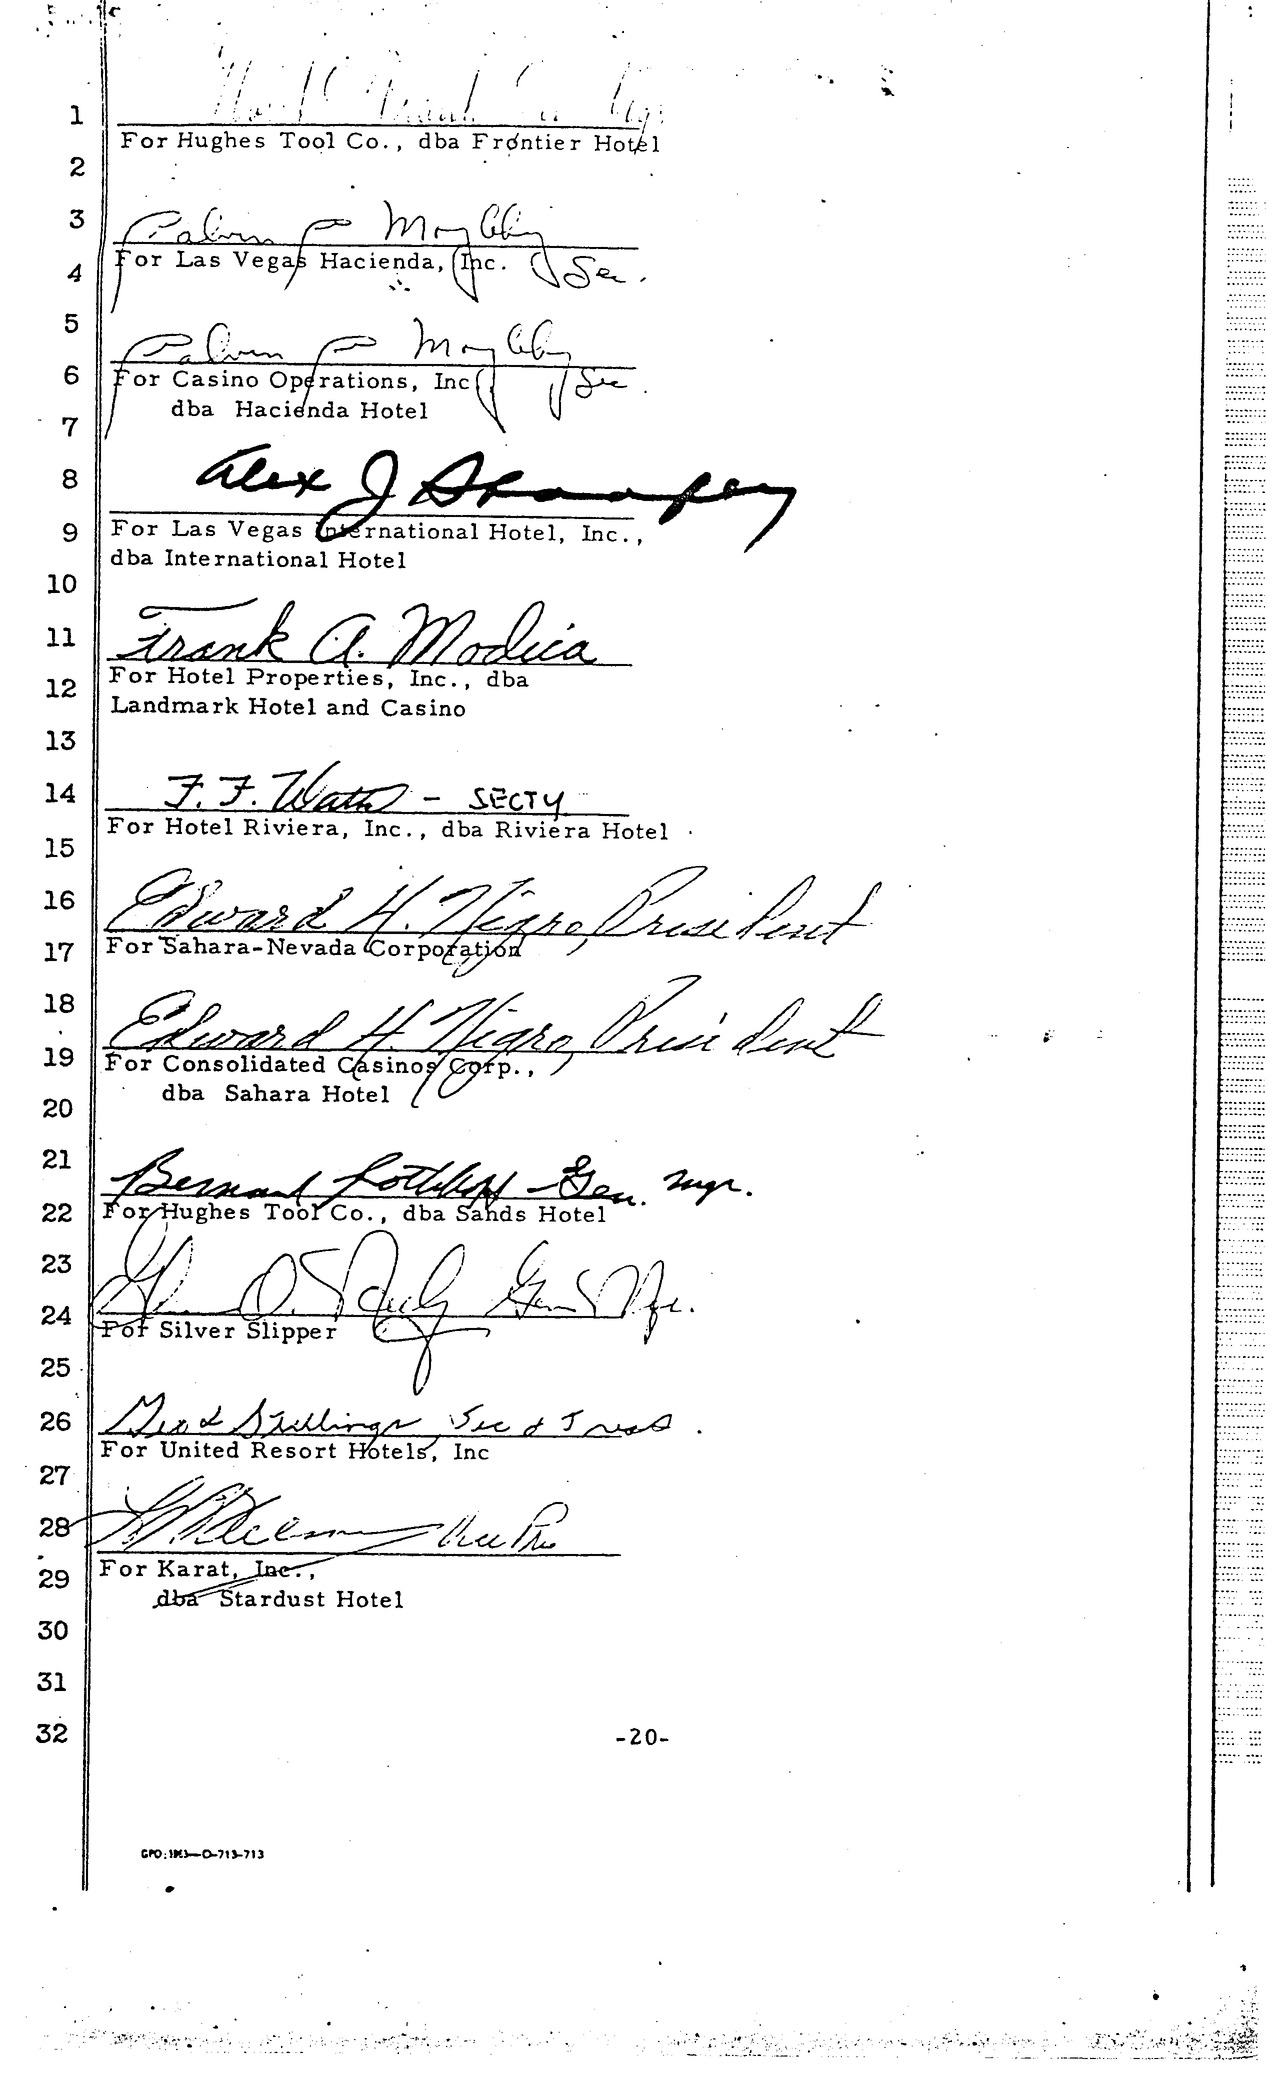 1
For Hughes Tool Co., dba Frontier Hotel
2
3
For Las Vegas Hacienda, Inc. Sec.
4
5
6
For Casino Operations, Inc Sec.
dba Hacienda Hotel
7
8 Alex J
9 For Las Vegas International Hotel, Inc.,
dba International Hotel
10
11 Frank A. Modica
For Hotel Properties, Inc., dba
12
Landmark Hotel and Casino
13
14 F. F. Watts - SECTY
For Hotel Riviera, Inc., dba Riviera Hotel
15
16 Edward H. Nigro, President
17 For Sahara-Nevada Corporation
18
Edward H. Nigro, President
19 For Consolidated Casinos Corp.,
dba Sahara Hotel
20
21
Bernard Rothkopf - Gen. Mgr.
22 For Hughes Tool Co., dba Sands Hotel
23
24
For Silver Slipper
25
26 Stillings Sec & Treas.
For United Resort Hotels, Inc
27
28 Vice Pres
For Karat, Inc.,
29
dba Stardust Hotel
30
31
32
-20-
GPO:1963—O-713-713